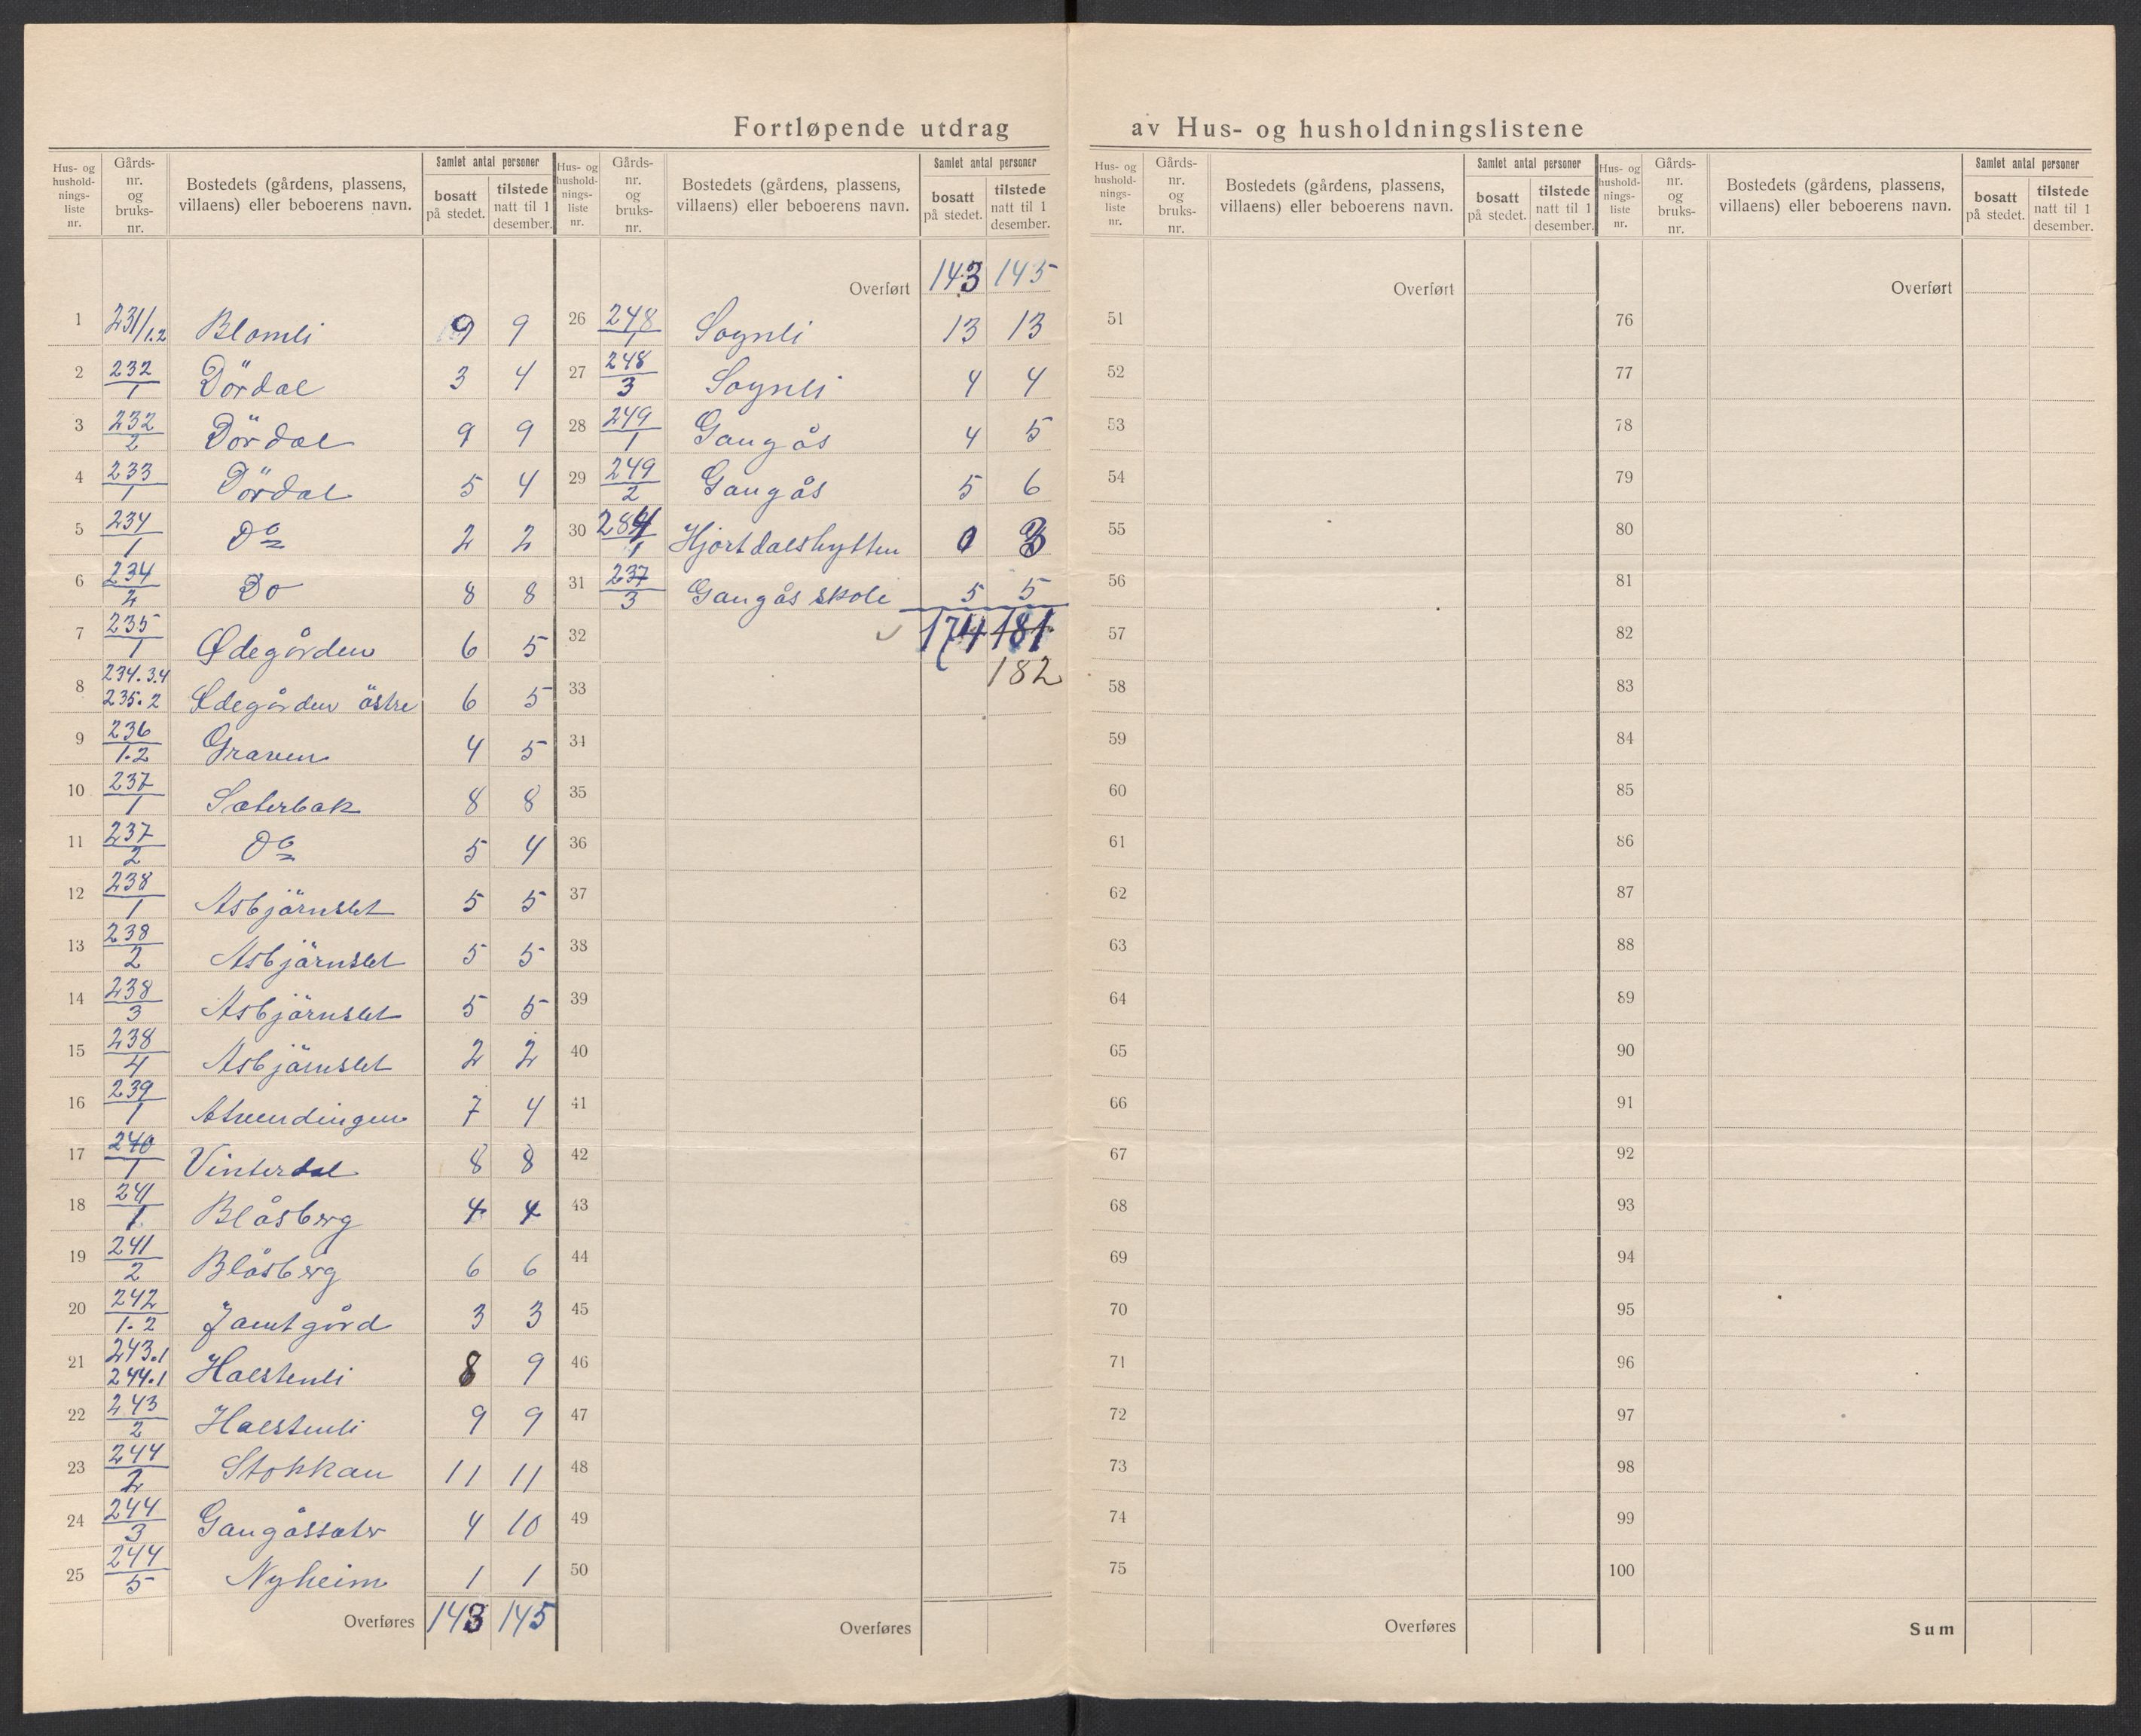 Fortløpende utdrag av Hus- og husholdningslistene
Hus- og hushold-nings-liste nr. | Gårds-nr. og bruks-nr. | Bostedets (gårdens, plassens, villaens) eller beboerens navn. | Samlet antal personer | bosatt på stedet. | tilstede natt til 1 desember.
1 231/1.2 Blomli 9 9
2 232/1 Dördal 3 4
3 232/2 Dördal 9 9
4 233/1 Dördal 5 4
5 234/1 Do 2 2
6 234/2 Do 8 8
7 235/1 Ødegården 6 5
8 234.3.4 235.2 Ødegården östre 6 5
9 236/1.2 Graven 4 5
10 237/1 Sæterbak 8 8
11 237/2 Do 5 4
12 238/1 Asbjörnslet 5 5
13 238/2 Asbjörnslet 5 5
14 238/3 Asbjörnslet 5 5
15 238/4 Asbjörnslet 2 2
16 239/1 7 4
17 240/1 Vinterdal 8 8
18 241/1 Blåsberg 4 4
19 241/2 Blåsberg 6 6
20 242/1.2 Jamtgård 3 3
21 243.1 244.1 Halstenli 8 9
22 243/2 Halstenli 9 9
23 244/2 Stokkan 11 11
24 244/3 Gangåssæter 4 10
25 244/5 Nyheim 1 1
Overføres 143 145
Hus- og hushold-nings-liste nr. | Gårds-nr. og bruks-nr. | Bostedets (gårdens, plassens, villaens) eller beboerens navn. | Samlet antal personer | bosatt på stedet. | tilstede natt til 1 desember.
Overført 143 145
26 248/1 Sognli 13 13
27 248/3 Sognli 4 4
28 249/1 Gangås 4 5
29 249/2 Gangås 5 6
30 Hjortdalshytten 0 3
31 237/3 Gangås skole 5 5
32 174 181
182
33
34
35
36
37
38
39
40
41
42
43
44
45
46
47
48
49
50
Overføres
Hus- og hushold-nings-liste nr. | Gårds-nr. og bruks-nr. | Bostedets (gårdens, plassens, villaens) eller beboerens navn. | Samlet antal personer | bosatt på stedet. | tilstede natt til 1 desember.
Overført
51
52
53
54
55
56
57
58
59
60
61
62
63
64
65
66
67
68
69
70
71
72
73
74
75
Overføres
Hus- og hushold-nings-liste nr. | Gårds-nr. og bruks-nr. | Bostedets (gårdens, plassens, villaens) eller beboerens navn. | Samlet antal personer | bosatt på stedet. | tilstede natt til 1 desember.
Overført
76
77
78
79
80
81
82
83
84
85
86
87
88
89
90
91
92
93
94
95
96
97
98
99
100
Sum